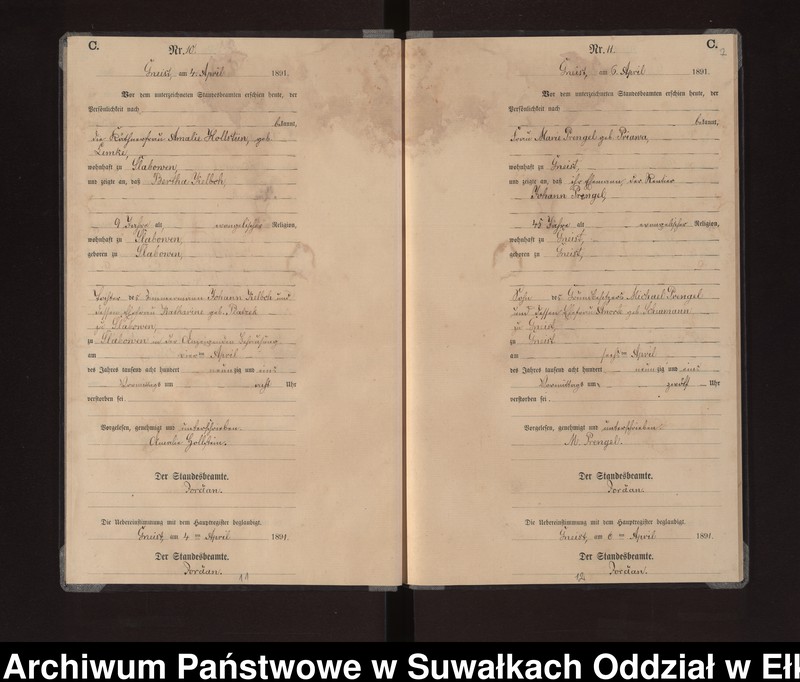 C.
Nr. 10.
Gneist, am 4. April 1891.
Vor dem unterzeichneten Standesbeamten erschien heute, der
Persönlichkeit nach
bekannt,
die Käthnerfrau Amalie Hollstein, geb.
Lemke,
wohnhaft zu Slabowen,
und zeigte an, daß Bertha Kelboh,
9 Jahre alt, evangelischer Religion,
wohnhaft zu Slabowen,
geboren zu Slabowen,
Tochter des Zimmermann Johann Kelboh und
dessen Ehefrau Katherine geb.
zu Slabowen,
zu Slabowen in der
am vierten April
des Jahres tausend acht hundert neunzig und eins
Vormittags um Uhr
verstorben sei.
Vorgelesen, genehmigt und unterschrieben.
Amalie Hollstein.
Der Standesbeamte.
Jordan.
Die Uebereinstimmung mit dem Hauptregister beglaubigt.
Gneist, am 4ten April 1891.
Der Standesbeamte.
Jordan.
11
C.
2
Nr. 11.
Gneist, am 6. April 1891.
Vor dem unterzeichneten Standesbeamten erschien heute, der
Persönlichkeit nach
bekannt,
Frau Marie Prengel geb. Priawa,
wohnhaft zu Gneist,
und zeigte an, daß ihr Ehemann, der Rentier
Johann Prengel,
45 Jahre alt, evangelischer Religion,
wohnhaft zu Gneist,
geboren zu Gneist,
Sohn des Grundbesitzers Michael Prengel
und dessen Ehefrau geb. Schumann
zu Gneist
zu Gneist
am sechsten April
des Jahres tausend acht hundert neunzig und eins
Vormittags um zwölf Uhr
verstorben sei.
Vorgelesen, genehmigt und unterschrieben.
M. Prengel.
Der Standesbeamte.
Jordan.
Die Uebereinstimmung mit dem Hauptregister beglaubigt.
Gneist, am 6ten April 1891.
Der Standesbeamte.
Jordan.
12
Archiwum Państwowe w Suwałkach Oddział w Ełk